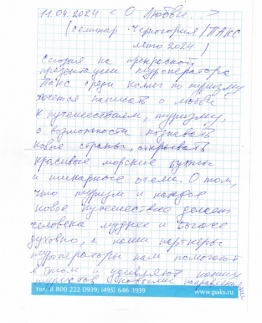 11.04.2024 "О Любви..."
(семинар Черногория/ПАКС
лето 2024)
Сегодня на прекрасной
презентации туроператора
Пакс среди коллег по туризму
хочется написать о любви
к путешествиям, туризму,
о возможности познавать
новые страны, открывать
красивые морские бухты
и шикарные отели. О том,
что туризм и каждое
новое путешествие делает
человека мудрее и богаче
духовно, а наши партнеры
туроператоры нам помогают
в этом и удивляют наших
туристов новыми
тел. 8 800 222 0939; (495) 646 3939 www.paks.ru